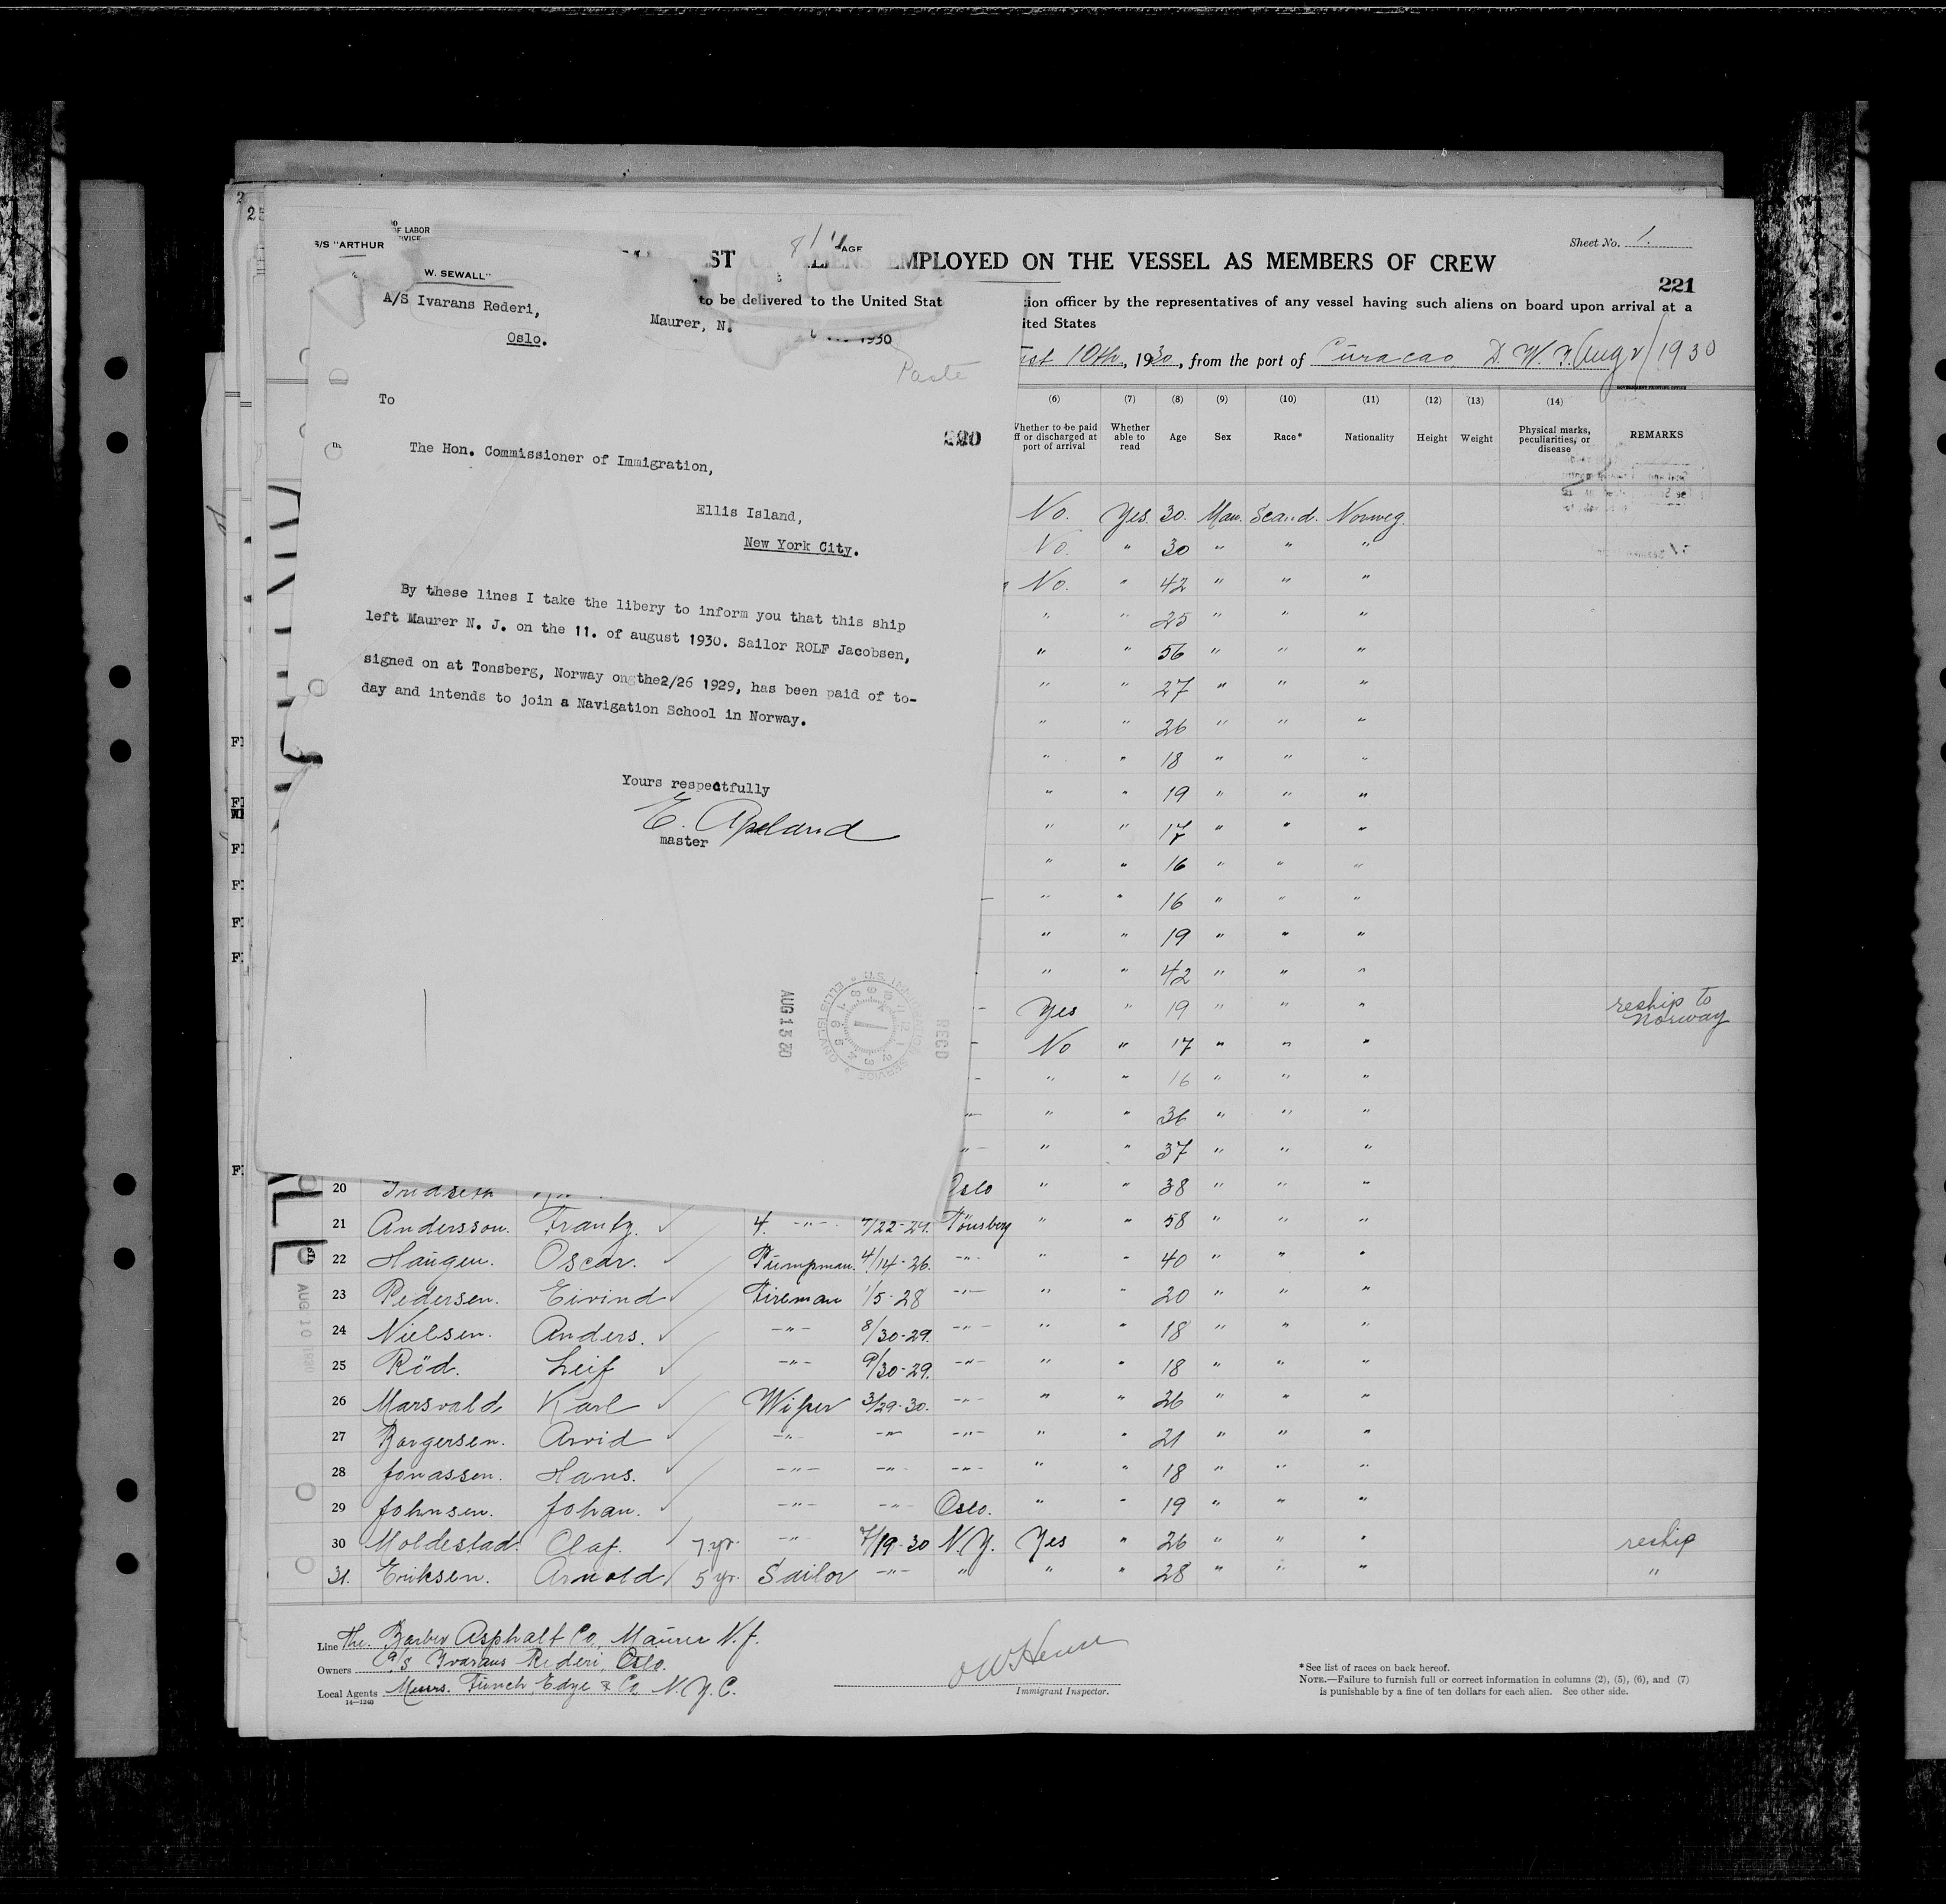 S/S "ARTHUR
W. SEWALL"
A/S Ivarans Rederi,
Oslo.
Maurer, N.
1930
Paste
To
220
The Hon. Commissioner of Immigration,
Ellis Island,
New York City.
By these lines I take the libery to inform you that this ship
left Maurer N. J. on the 11. of august 1930. Sailor ROLF Jacobsen,
signed on at Tonsberg, Norway on the2/26 1929, has been paid of to-
day and intends to join a Navigation School in Norway.
Yours respectfully
E. Apeland
master
AUG 13 30
U.S. IMMIGRATION SERVICE
ELLIS ISLAND
RECD
OF LABOR
Sheet No. 1.
221
EMPLOYED ON THE VESSEL AS MEMBERS OF CREW
to be delivered to the United Stat
tion officer by the representatives of any vessel having such aliens on board upon arrival at a
ited States
10th, 1930, from the port of Curacao, D. W. I. Aug 2/1930
(6) (7) (8) (9) (10) (11) (12) (13) (14)
Whether to be paid off or discharged at port of arrival Whether able to read Age Sex Race* Nationality Height Weight Physical marks, peculiarities, or disease REMARKS
No. Yes. 30. Man. Scand. Norweg.
No. " 30 " " "
No. " 42 " " "
" " 25 " " "
" " 56 " " "
" " 27 " " "
" " 26 " " "
" " 18 " " "
" " 19 " " "
" " 17 " " "
" " 16 " " "
" " 16 " " "
" " 19 " " "
" " 42 " " "
Yes " 19 " " " reship to Norway
No " 17 " " "
" " 16 " " "
" " 36 " " "
" " 37 " " "
20 Oslo " " 38 " " "
21 Andersson. Frantz. 4. -"- 7/22-29. Tönsberg " " 58 " " "
22 Haugen. Oscar. Pumpman. 4/14-26. -"- " " 40 " " "
23 Pedersen. Eivind Fireman 1/5-28 -"- " " 20 " " "
24 Nielsen. Anders. -"- 8/30-29. -"- " " 18 " " "
25 Röd. Leif -"- 9/30-29. -"- " " 18 " " "
26 Marsvald Karl Wiper 3/29-30. -"- " " 26 " " "
27 Borgersen. Arvid -"- -"- -"- " " 21 " " "
28 Jonassen. Hans. -"- -"- -"- " " 18 " " "
29 Johnsen. Johan. -"- -"- Oslo. " " 19 " " "
30 Moldestad. Olaf. 7 yr. -"- 7/19-30 N.Y. Yes " 26 " " " reship
31. Eriksen. Arnold 5 yr. Sailor -"- " " " 28 " " " "
AUG 10 1930
Line The. Barber Asphalt Co, Maurer N.J.
Owners A/S Ivarans Rederi, Oslo.
Local Agents Messrs. Funch, Edye & Co, N.Y.C.
14—1240
Immigrant Inspector.
*See list of races on back hereof.
NOTE.—Failure to furnish full or correct information in columns (2), (5), (6), and (7)
is punishable by a fine of ten dollars for each alien. See other side.